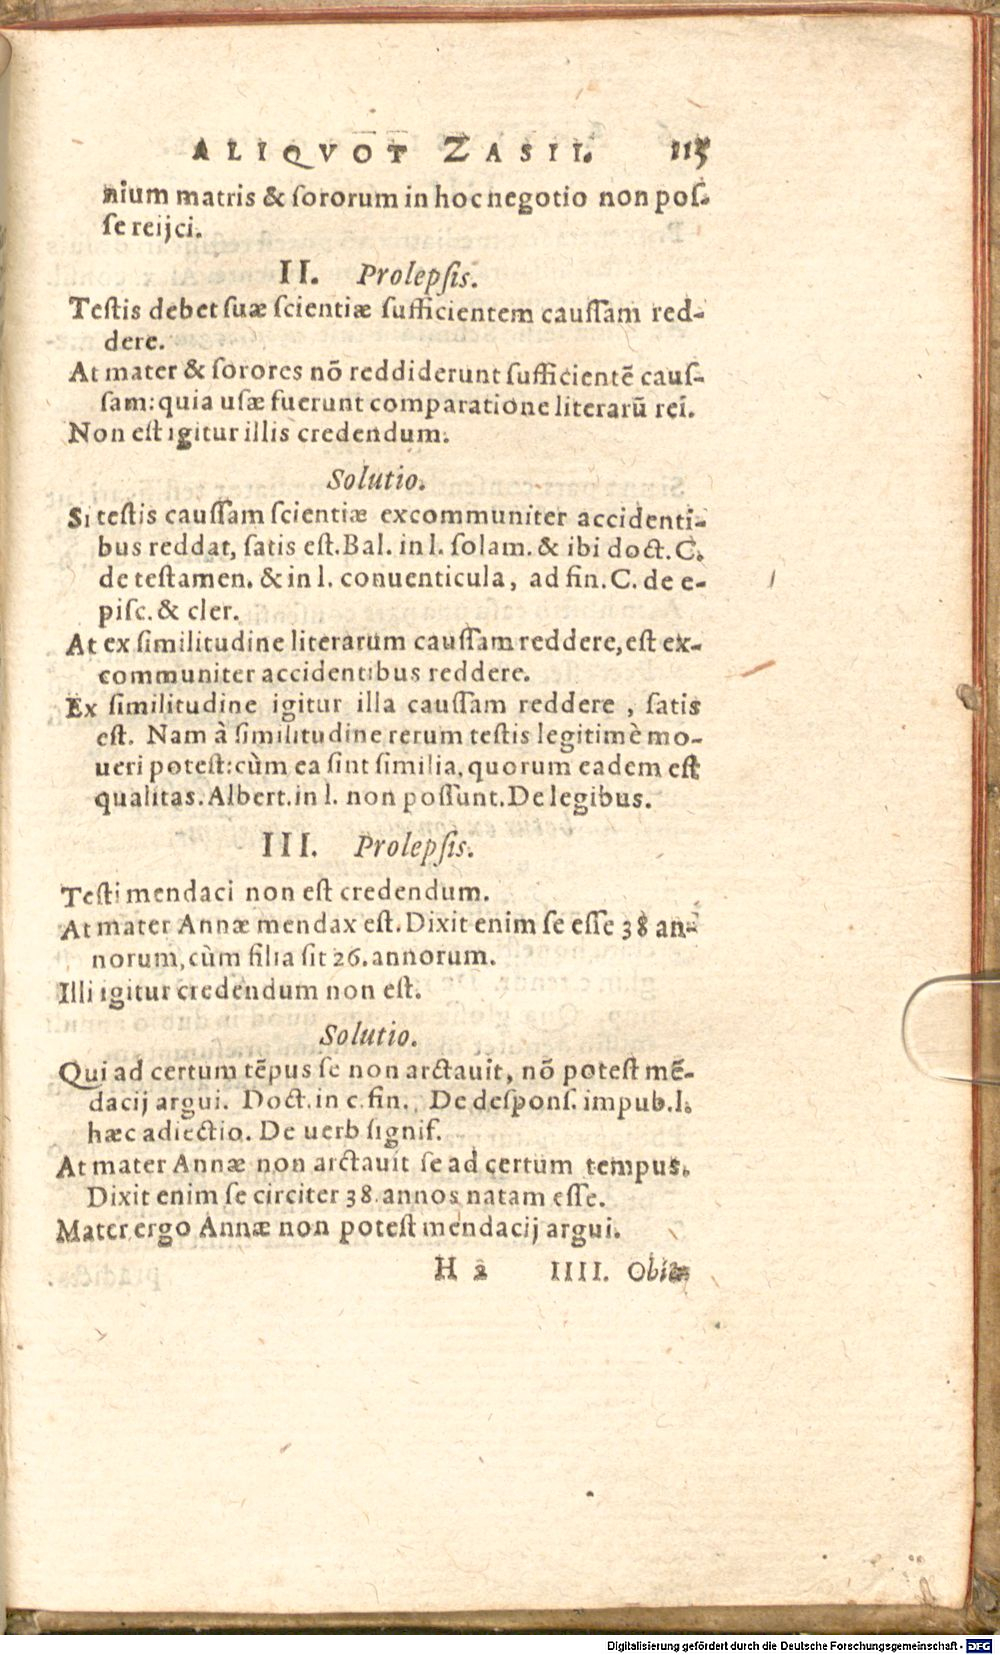 ALIQVOT ZASII. 115
nium matris & ſororum in hoc negotio non poſ-
ſe reijci.
II. Prolepſis.
Teſtis debet ſuæ ſcientiæ ſufficientem cauſſam red-
dere.
At mater & ſorores nõ reddiderunt ſufficientẽ cauſ-
ſam: quia uſæ fuerunt comparatione literarũ rei.
Non eſt igitur illis credendum.
Solutio.
Si teſtis cauſſam ſcientiæ excommuniter accidenti-
bus reddat, ſatis eſt. Bal. in l. ſolam. & ibi doct. C.
de teſtamen. & in l. conuenticula, ad fin. C. de e-
piſc. & cler.
At ex ſimilitudine literarum cauſſam reddere, eſt ex-
communiter accidentibus reddere.
Ex ſimilitudine igitur illa cauſſam reddere, ſatis
eſt. Nam à ſimilitudine rerum teſtis legitimè mo-
ueri poteſt: cùm ea ſint ſimilia, quorum eadem eſt
qualitas. Albert. in l. non poſſunt. De legibus.
III. Prolepſis.
Teſti mendaci non eſt credendum.
At mater Annæ mendax eſt. Dixit enim ſe eſſe 38 an-
norum, cùm filia ſit 26. annorum.
Illi igitur credendum non eſt.
Solutio.
Qui ad certum tẽpus ſe non arctauit, nõ poteſt mẽ-
dacij argui. Doct. in c. fin. De deſponſ. impub. l.
hæc adiectio. De uerb ſignif.
At mater Annæ non arctauit ſe ad certum tempus.
Dixit enim ſe circiter 38. annos natam eſſe.
Mater ergo Annæ non poteſt mendacij argui.
H 2 IIII. Obie-
Digitalisierung gefördert durch die Deutsche Forschungsgemeinschaft - DFG